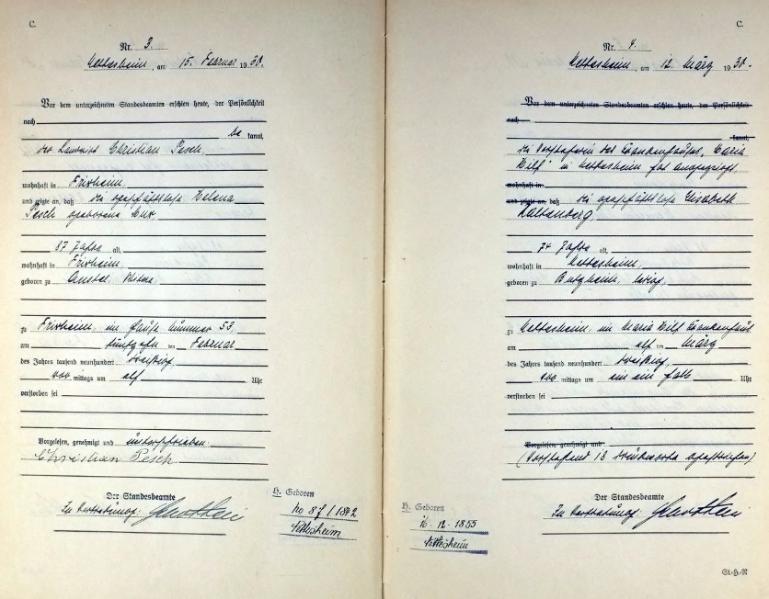 C.
Nr. 3.
Nettesheim, am 15. Februar 1930.
Vor dem unterzeichneten Standesbeamten erschien heute, der Persönlichkeit
nach
be kannt,
der Landwirt Christian Pesch,
wohnhaft in Frixheim,
und zeigte an, daß die geschäftslose Helena
Pesch geborene
87 Jahre alt,
wohnhaft in Frixheim,
geboren zu Anstel, Witwe
zu Frixheim, im Hause Nummer 53
am fünfzehn ten Februar
des Jahres tausend neunhundert dreißig,
vor mittags um elf Uhr
verstorben sei
Vorgelesen, genehmigt und unterschrieben.
Christian Pesch
Der Standesbeamte
In Vertretung:
H. Geboren
No 87/1842
Nettesheim
C.
Nr. 4.
Nettesheim, am 12. März 1930.
Vor dem unterzeichneten Standesbeamten erschien heute, der Persönlichkeit
nach
kannt,
die Vorsteherin des Krankenhauses "Maria
Hilf" in Nettesheim hat angezeigt,
wohnhaft in
und zeigte an, daß die geschäftslose Elisabeth
Kaltenberg,
74 Jahre alt,
wohnhaft in Nettesheim,
geboren zu Butzheim, ledig,
zu Nettesheim, im Maria Hilf Krankenhaus
am elf ten März
des Jahres tausend neunhundert dreißig,
vor mittags um ein ein halb Uhr
verstorben sei
Vorgelesen, genehmigt und
(Vorstehend 13 Druckworte gestrichen)
Der Standesbeamte
In Vertretung:
H. Geboren
16.12.1855
Nettesheim
St-H-R